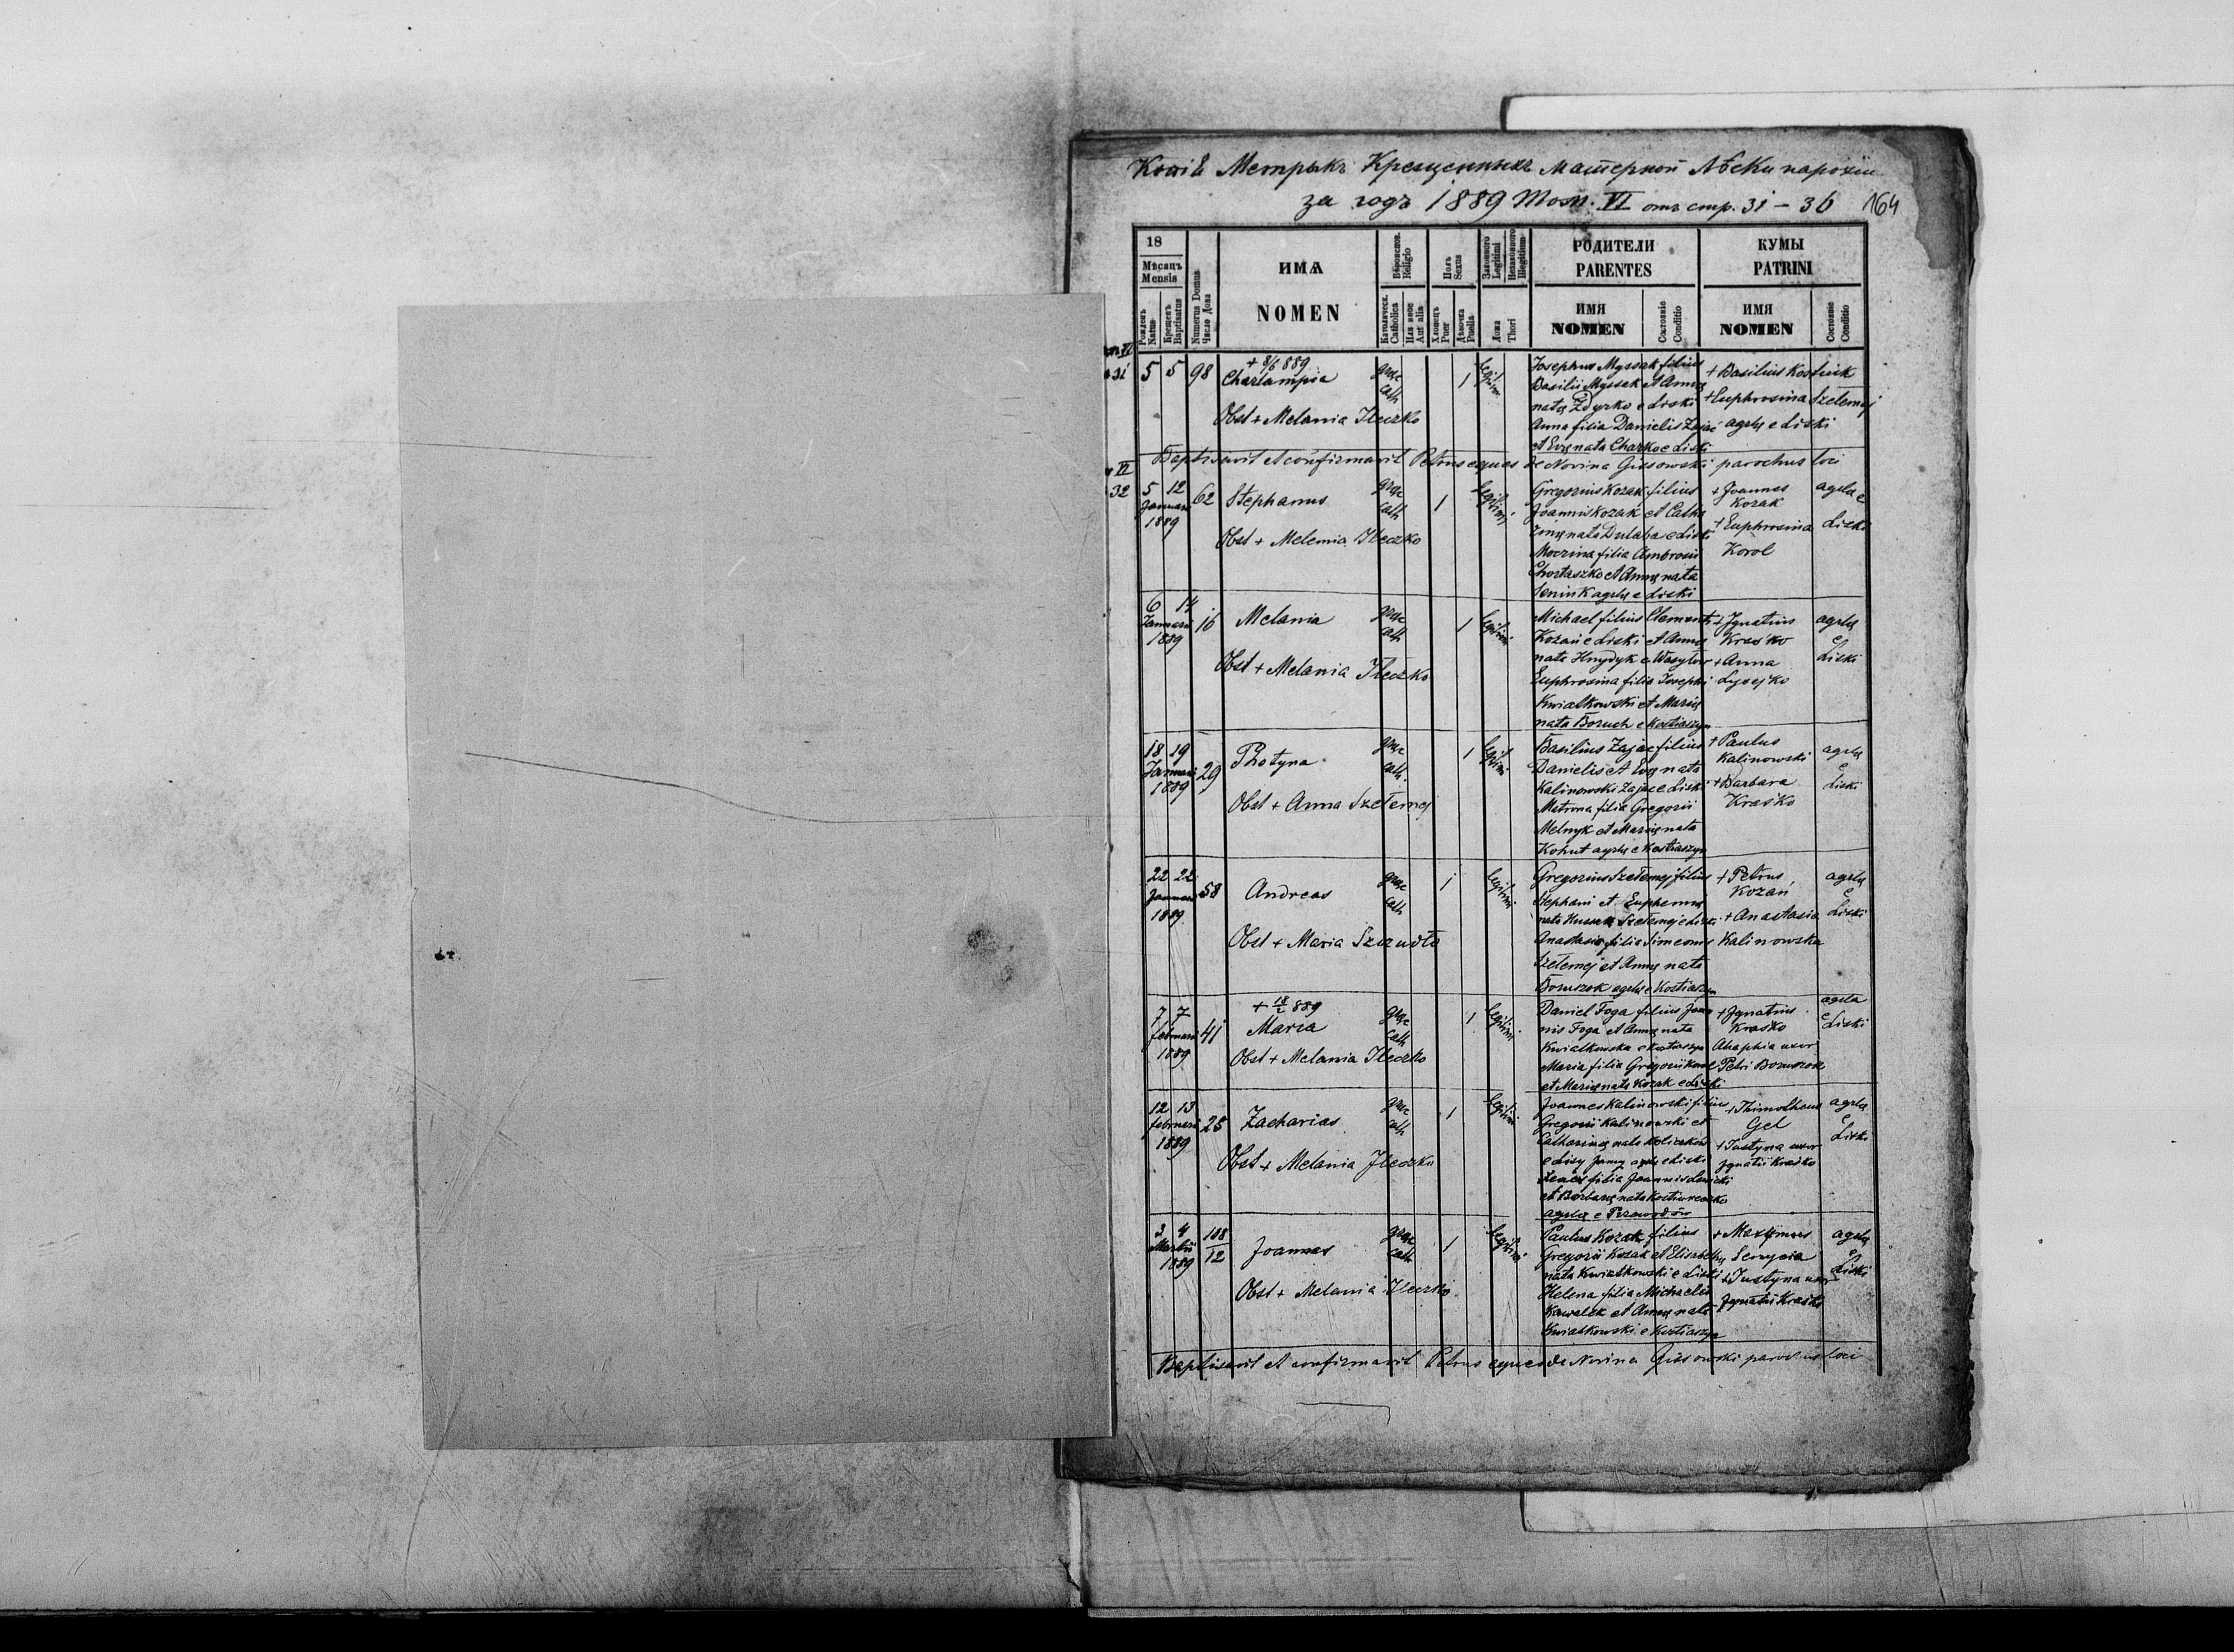 Копіѣ Метрыкъ Крещенныхъ матерной Лѣски парохіи
за годъ 1889 Том. VI отъ стр. 31 – 36 164
18
Мѣсяцъ
Mensis
Рожденъ
Natus
Крещенъ
Baptisatus
Numerus Domus
Число Дома
ИМѦ
NOMEN
Вѣроиспов.
Religio
Католическ.
Catholica
Или иное
Aut alia
Полъ
Sexus
Хлопецъ
Puer
Дѣвочка
Puella
Законного
Legitimi
Незаконного
Illegitimi
Ложа
Thori
РОДИТЕЛИ
PARENTES
ИМЯ
NOMEN
Состояніе
Conditio
КУМЫ
PATRINI
ИМЯ
NOMEN
Состояніе
Conditio
31
5 5 98
+ 8/6 889
Charlampia
Obst + Melania Ileczko
graec
cath
1
legitimi
Josephus Myssak filius
Basilii Myssak et Annę
natę Zdyrko e Liski
Anna filia Danielis Zając
et Evę nata Charko e Liski
+ Basilius Kostiuk
+ Euphrosina Szełemej
agrlę e Liski
Baptisavit et confirmavit Petrus eques de Novina Gissowski parochus loci
VI
32
5 12 62
Januari
1889
Stephanus
Obst + Melania Ileczko
graec
cath
1
legitimi
Gregorius Kozak filius
Joannis Kozak et Catha
rinę nata Dulaba e Liski
filia Ambrosii
Chortaszko et Annę nata
Seniuk agrlę e Liski
+ Joannes
Kozak
+ Euphrosina
Korol
agrlę e
Liski
6 14 16
Januari
1889
Melania
Obst + Melania Ileczko
graec
cath
1
legitimi
Michael filius Clementi
Kozań e Liski et Annę
nata Hnydyk e Wasylów
Euphrosina filia Josephi
Kwiatkowski et Marię
nata Boruch e Kostiaszyn
+ Ignatius
Kraśko
+ Anna
Łysejko
agrlę
e
Liski
18 19 29
Januari
1889
Photyna
Obst + Anna Szełemej
graec
cath.
1
legitimi
Basilius Zając filius
Danielis et Evę nata
Kalinowski Zając e Liski
Matrona filia Gregorii
Melnyk et Marię nata
Kohut agrlę e Kostiaszyn
+ Paulus
Kalinowski
+ Barbara
Kraśko
agrlę
e
Liski
22 22 58
Januari
1889
Andreas
Obst + Maria Szczudło
graec
cath
1
legitimi
Gregorius Szełemej filius
Stephani et Euphemię
nata Szełemej e Liski
Anastasia filia Simeonis
Szełemej et Annę nata
Boruszok agrlę e Kostiaszyn
+ Petrus
Kozań
+ Anastasia
Kalinowska
agrlę
e
Liski
7 7 41
februari
1889
+ 18/2 889
Maria
Obst + Melania Ileczko
graec
cath
1
legitimi
Daniel Foga filius Joan
nis Foga et Annę nata
Kwiatkowska e Kostiaszyn
Maria filia Gregorii Korol
et Marię nata Kozak e Liski
+ Ignatius
Kraśko
Ahaphia uxor
Petri Boruszok
agrla
e
Liski
12 13 25
februari
1889
Zacharias
Obst + Melania Ileczko
graec
cath
1
legitimi
Joannes Kalinowski filius
Gregorii Kalinowski et
Catharinę nata
e Lisy Jamy agrlę e Liski
filia Joannis
et Barbarę nata
agrlę e Perewodów
+ Thimotheus
Gel
+ Justyna uxor
Ignatii Kraśko
agrlę
e
Liski
3 4 108/12
Martii
1889
Joannes
Obst + Melania Ileczko
graec
cath
1
legitimi
Paulus Kozak filius
Gregorii Kozak et Elisabethę
nata Kwiatkowski e Liski
Helena filia Michaelis
Kawalek et Annę nata
Kwiatkowski e Kostiaszyn
+ Maxymus
+ Justyna uxor
Ignatii Kraśko
agrlę
e
Liski
Baptisavit et confirmavit Petrus eques de Novina Gissowski parochus loci